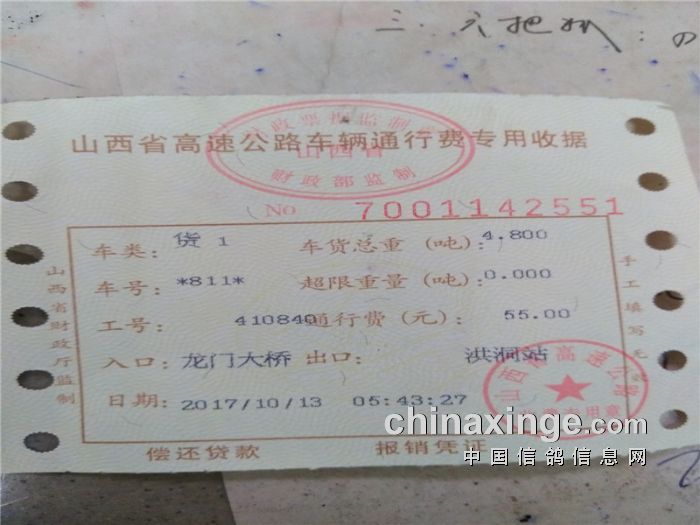 三. 六把叭:
山西省高速公路车辆通行费专用收据
财政票据监制
山西省
财政部监制
No 7001142551
车类: 货 1 车货总重 (吨): 4.800
车号: *811* 超限重量 (吨): 0.000
工号: 410840 通行费 (元): 55.00
入口: 龙门大桥 出口: 洪洞站
日期: 2017/10/13 05:43:27
偿还贷款 报销凭证
山西省财政厅监制
手工填写无效
山西省高速公路
专用章
chinaxinge.com
中国信鸽信息网